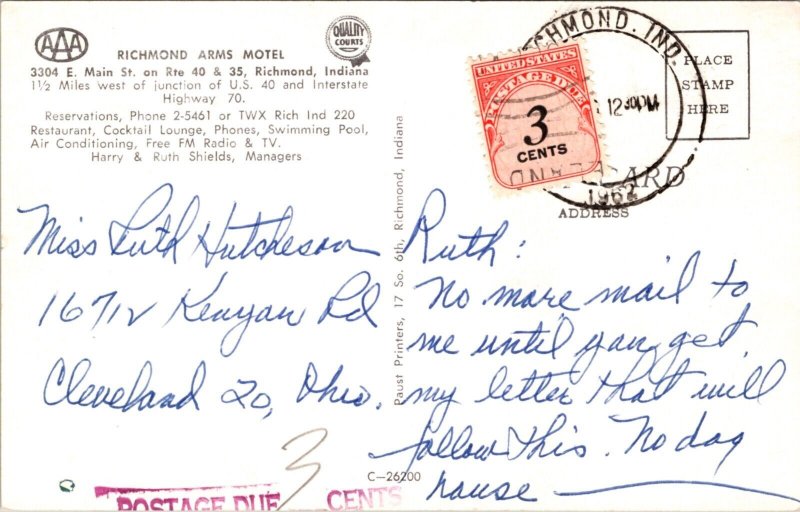 AAA
QUALITY
COURTS
RICHMOND ARMS MOTEL
3304 E. Main St. on Rte 40 & 35, Richmond, Indiana
1½ Miles west of junction of U.S. 40 and Interstate
Highway 70.
Reservations, Phone 2-5461 or TWX Rich Ind 220
Restaurant, Cocktail Lounge, Phones, Swimming Pool,
Air Conditioning, Free FM Radio & TV.
Harry & Ruth Shields, Managers
Miss Ruth Hutcheson
16712 Kenyon Rd
Cleveland 20, Ohio.
3
POSTAGE DUE CENTS
Paust Printers, 17 So. 6th, Richmond, Indiana
C-26200
UNITED STATES
POSTAGE DUE
3
CENTS
RICHMOND, IND.
12 30 PM
1962
PLACE
STAMP
HERE
ARD
ADDRESS
Ruth:
No more mail to
me until you get
my letter that will
follow this. No dog
house